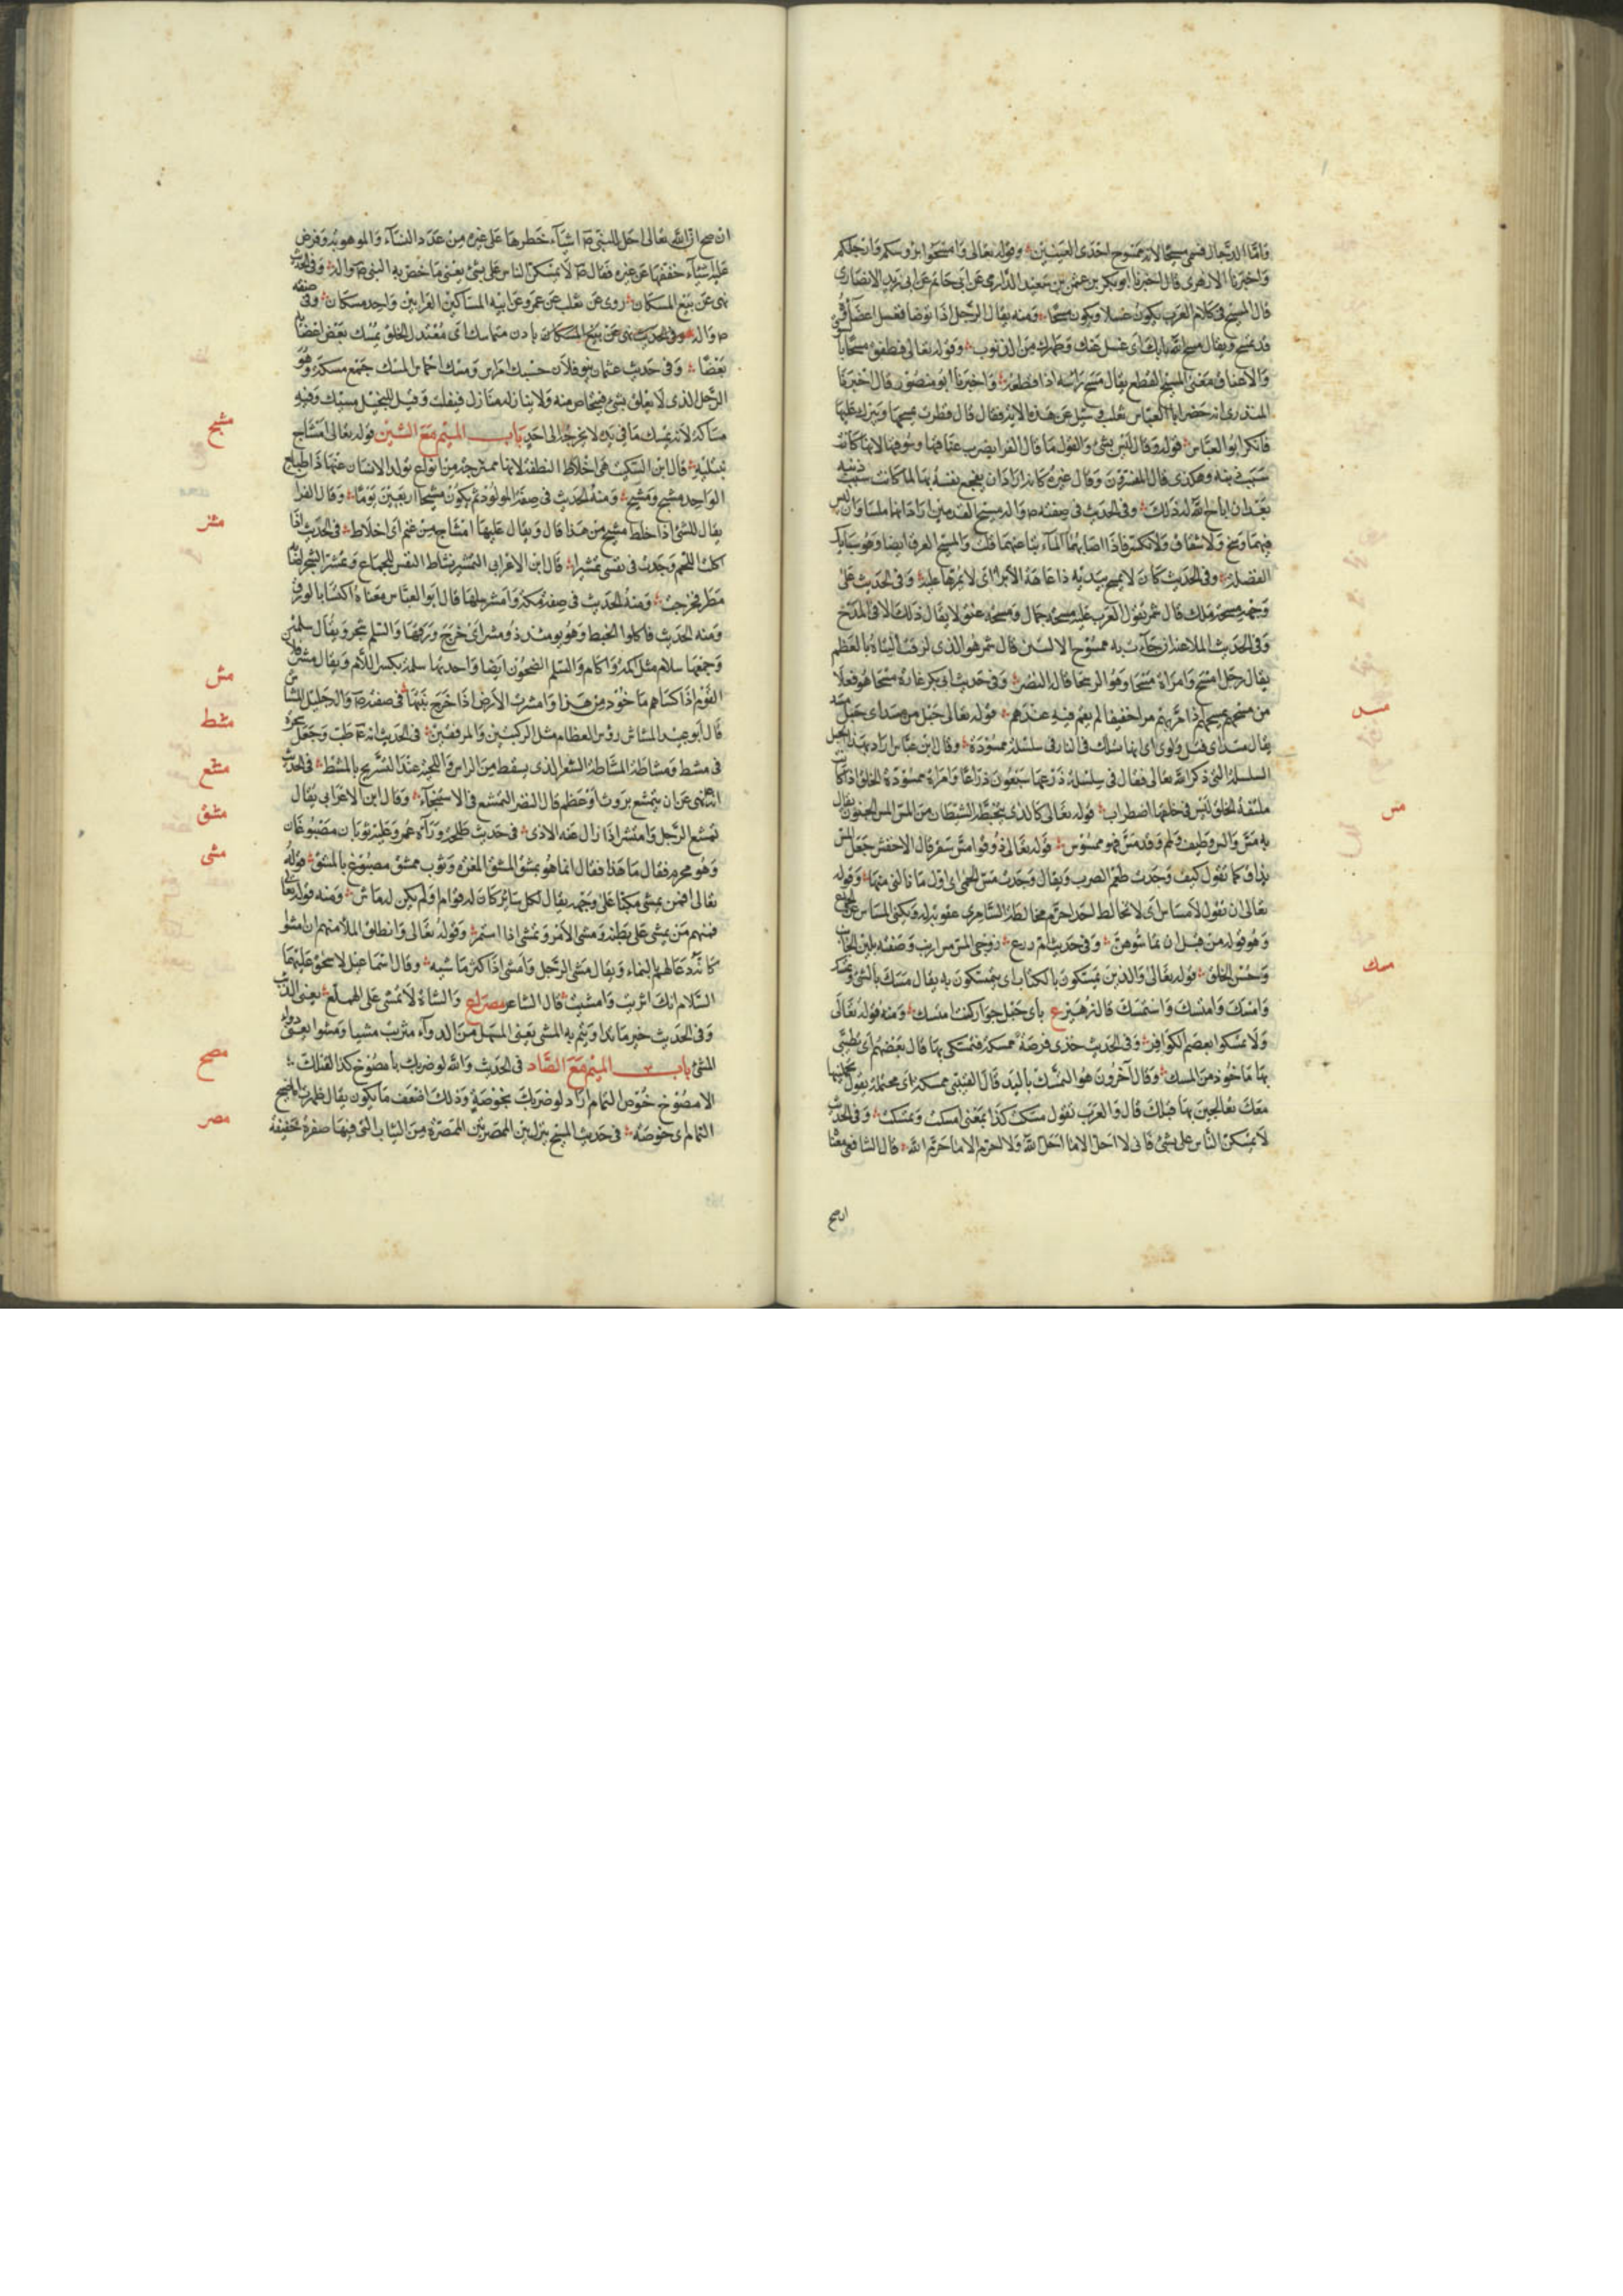 واما الدجال فسمى مسيحا لانه ممسوح احدى العينين وقوله تعالى وامسحوا برؤسكم وارجلكم
واخبرنا الازهرى قال اخبرنا ابو بكر بن عثمن بن سعيد الدارى عن ابى حاتم عن ابى زيد الانصارى
قال المسح فى كلام العرب يكون غسلا ويكون مسحا ومنه يقال للرجل اذا توضا فغسل اعضاءه
قد تمسح ويقال مسح الله ما بك اى غسل عنك وطهرك من الذنوب وقوله تعالى فطفق مسحا بالسوق
والاعناق معنى المسح القطع يقال مسح راسه اذا قطعه واخبرنا ابو منصور قال اخبرنا
المنذرى انه حضر ابا العباس ثعلب سئل عن هذه الاية فقال قال قطرب يمسحها ويبرك عليها
فانكر ابو العباس قوله وقال ليس بشئ والقول ما قال الفرا يضرب اعناقها وسوقها لانها كانت
سبب ذنبه وهكذى قال المفسرون وقال غيره
بعد ان اباح الله له ذلك وفى الحديث فى صفته ص واله مسيح القدمين اراد انهما ملسا وان ليس
فيهما وسخ ولا شقاق ولا تكسر فاذا اصابهما الماء نبا عنهما قلت والمسيح العرق ايضا وهو سبايك
الفضة وفى الحديث كان لا يمسح بيديه ذا عاهة الا برا اى لا يمرها عليه وفى الحديث على
وجهه مسحة ملك قال شمر تقول العرب عليه مسحة جمال ومسحة عتق لا يقال ذلك الا فى المدح
وفى الحديث الملاعنة ان جآءت به ممسوح الاليتين قال شمر هو الذى لزقت اليتاه بالعظم
يقال رجل امسح وامراة مسحا وهو الرسحا قاله النضر وفى حديث ابى بكر غارة مسحا هو فعلا
من مسحهم يمسحهم اذا مر بهم مرا خفيفا لم يقم فيه عندهم قوله تعالى حبل من مسد اى حبل
يقال مسد اى فتل ولوى اى انها تسلك فى النار فى سلسلة ممسودة وقال ابن عباس اراد بهذا الحبل
السلسلة التى ذكر الله تعالى فقال فى سلسلة ذرعها سبعون ذراعا وامراة ممسودة الخلق اذا كانت
ملتفة الخلق ليس فى خلقها اضطراب قوله تعالى كالذى يتخبطه الشيطان من المس المس الجنون يقال
به مس والس وقد مس فهو ممسوس قوله تعالى ذوقوا مس سقر قال الاخفش جعل المس
يذاق كما تقول كيف وجدت طعم الضرب ويقال وجدت مس الحمى اى اول ما نالنى منها وقوله
تعالى ان تقول لا مساس اى لا تخالط احد احرم مخالطة السامرى عقوبة له ويكنى المساس عن الجماع
وهو قوله من قبل ان تماسوهن وفى حديث ام زرع زوجى المس مس ارنب وصفته بلين الجانب
وحسن الخلق قوله تعالى والذين يمسكون بالكتاب اى يتمسكون به يقال مسك بالشئ وتمسك
وامسك وامتسك واستمسك قال زهير ع باى حبل جوار كنت امتسك ومنه قوله تعالى
ولا تمسكوا بعصم الكوافر وفى الحديث خذى فرصة ممسكة فتمسكى بها قال بعضهم اى تطيبى
بها ماخوذ من المسك وقال آخرون هو التمسك باليد قال القتيبى ممسكة اى محتملة يقول تحملينها
معك تعالجين بها قبلك قال والعرب تقول مسكت كذا بمعنى امسكت وتمسكت وفى الحديث
لا يمسكن الناس على بشئ فانى لا احل الا ما احل الله ولا احرم الا ما حرم الله قال الشافعى معنا
مسد
مس
مسك
ان صح
ان صح ان الله تعالى احل للنبى ص اشيآء حظرها على غيره من عدد النسآء والموهوبة وفرض
عليه اشيآء خففها عن غيره فقال ص لا يمسكن الناس على بشئ يعنى ما خص به النبى ص واله وفى الحديث
نهى عن بيع المسكان روى عن ثعلب عن عمرو عن ابيه المساكين العرابين واحد مسكان وفى صفته
ص واله وفى الحديث نهى عن بيع المسكان بادن متماسك اى معتدل الخلق يمسك بعض اعضائه
بعضا وفى حديث عثمان بنو فلان حسك امراس ومسك احماس المسك جمع مسكة وهو
الرجل الذى لا يعلق بشئ فيتخلص منه ولا ينازله منازل فيفلت وقيل للبخيل مسيك وفيه
مساكة لانه يمسك ما فى يده لا يخرجه الى احد باب الميم مع الشين قوله تعالى امشاج
نبتليه قال ابن السكيت هى اخلاط النطفة لانها ممتزجة من انواع يولد الانسان عنها ذا طبايع
الواحد مشج ومشيج ومنه الحديث فى صفة المولود ثم يكون مشيجا اربعين يوما وقال الفرا
يقال للشئ اذا خلط مشيج من هذا قال ويقال عليها امشاج من غيم اى اخلاط فى الحديث اذا
اكلت اللحم وجدت فى نفسى تمشيرا قال ابن الاعرابى التمشير نشاط النفس للجماع وتمشر الشجر اذا اصابه
مطر فخرجت ومنه الحديث فى صفة مكة وامشر سلمها قال ابو العباس معناه اكتسا بالورق
ومنه الحديث فاكلوا الخبط وهو يومئذ ذو مشر اى خرج ورقها والسلم شجر ويقال سلمتين
وجمعها سلام مثل اكمة واكام والسلم الضحون ايضا واحدتها سلمة بكسر اللام ويقال مشرت فلان
القوم اذا كساهم ماخوذ من هذا وامشرت الارض اذا خرج نبتها فى صفته ص واله جليل المشاش
قال ابو عبيد المشاش رؤس العظام مثل الركبتين والمرفقين فى الحديث انه ع طب وجعل سحره
فى مشط ومشاطة المشاطة الشعر الذى يسقط من الراس واللحية عند التسريح بالمشط فى الحديث
انه نهى عن ان يتمشع بروث او عظم قال النضر التمشع فى الاستنجآء وقال ابن الاعرابى يقال
تمشع الرجل وامتش اذا زال عنه الاذى فى حديث طلحة ورآه عمر وعليه ثوبان مصبوغان
وهو محرم فقال ما هذا فقال انما هو بمشق المشق المغرة وثوب ممشق مصبوغ بالمشق قوله
تعالى افمن يمشى مكبا على وجهه يقال لكل سائر كان له قوام او لم يكن له ماش ومنه قوله تعالى
فمنهم من يمشى على بطنه ومشى الامر وتمشى اذا استمر وقوله تعالى وانطلق الملا منهم ان امشوا
كانه دعا لهم بالنماء ويقال مشى الرجل وامشى اذا اكثر ماشيته وقال اسماعيل لاسحق عليهما
السلام انك اثريت وامشيت قال الشاعر مصراع والشاة لا تمشى على الهملع يعنى الذئب
وفى الحديث خير ما تداويتم به المشى يعنى المسهل من الدوآء شربت مشيا ومشوا يعنى دواء
المشى باب الميم مع الصاد فى الحديث والله لو ضربك بامصوخ كذا لقتلك
الامصوخ خوص الثمام اراد لو ضربك بخوصة وذلك اضعف ما يكون يقال ظهرت اماصيخ
الثمام اى خوصه فى حديث المسيح ينزل بين الممصرتين الممصرة من الثياب التى فيها صفرة خفيفة
مشج
مشر
مش
مشط
مشع
مشق
مشى
مصخ
مصر